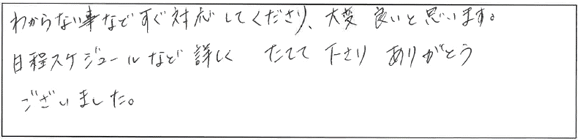 わからない事などすぐ対応してくださり、大変良いと思います。
日程スケジュールなど詳しくたてて下さりありがとう
ございました。